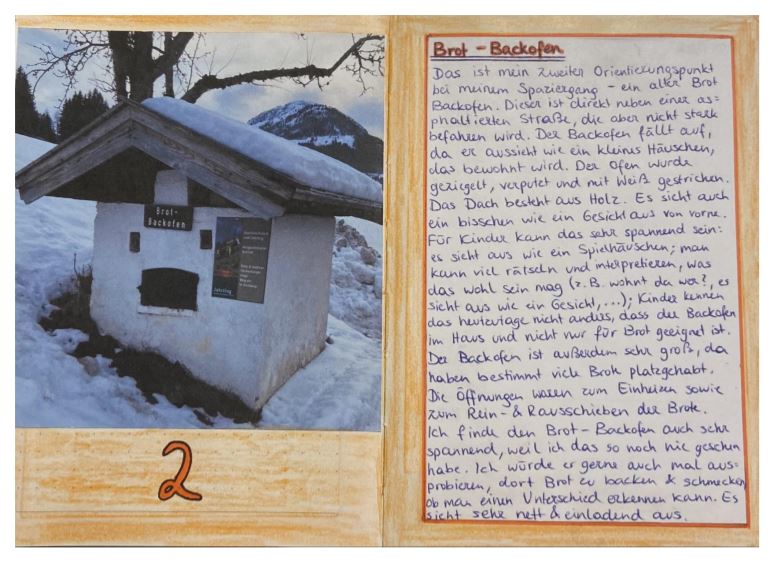 Brot-
Backofen
2
Brot - Backofen
Das ist mein zweiter Orientierungspunkt
bei meinem Spaziergang - ein alter Brot
Backofen. Dieser ist direkt neben einer as=
phaltierten Straße, die aber nicht stark
befahren wird. Der Backofen fällt auf,
da er aussieht wie ein kleines Häuschen,
das bewohnt wird. Der Ofen wurde
geziegelt, verputzt und mit Weiß gestrichen.
Das Dach besteht aus Holz. Es sieht auch
ein bisschen wie ein Gesicht aus von vorne.
Für Kinder kann das sehr spannend sein:
es sieht aus wie ein Spielhäuschen; man
kann viel rätseln und interpretieren, was
das wohl sein mag (z.B. wohnt da wer?, es
sieht aus wie ein Gesicht,...); Kinder kennen
das heutzutage nicht anders, dass der Backofen
im Haus und nicht nur für Brot geeignet ist.
Der Backofen ist außerdem sehr groß, da
haben bestimmt viele Brote platzgehabt.
Die Öffnungen waren zum Einheizen sowie
zum Rein- & Rausschieben der Brote.
Ich finde den Brot-Backofen auch sehr
spannend, weil ich das so noch nie gesehen
habe. Ich würde er gerne auch mal aus=
probieren, dort Brot zu backen & schmecken,
ob man einen Unterschied erkennen kann. Es
sieht sehr nett & einladend aus.